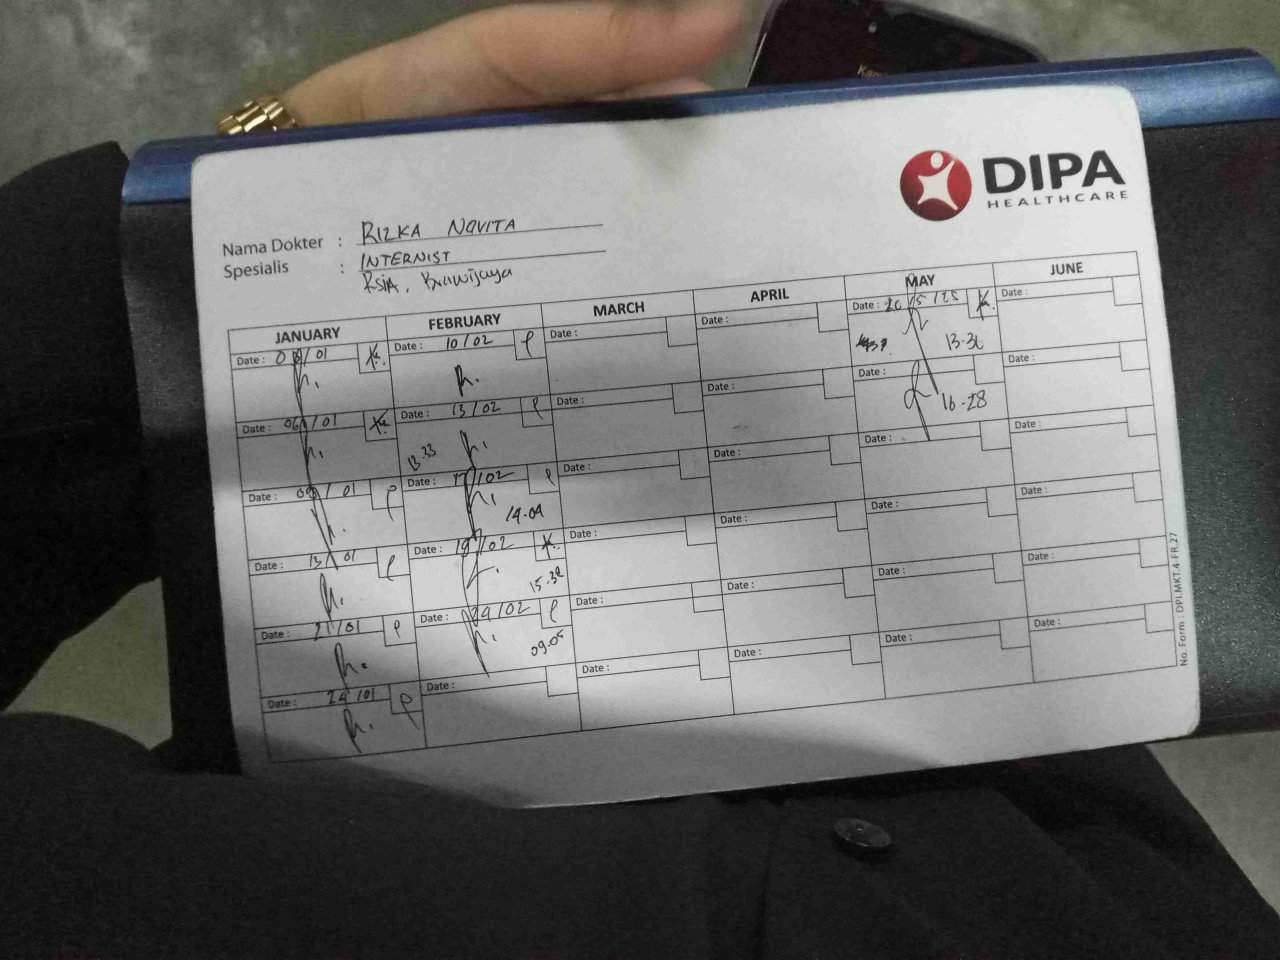 DIPA
HEALTHCARE
Nama Dokter : RIZKA NOVITA
Spesialis : INTERNIST
RSIA, Brawijaya
JANUARY FEBRUARY MARCH APRIL MAY JUNE
Date : /01 Date : 10/02 Date : Date : Date : 20/5/25 Date :
13-36
Date : 06/01 Date : 13/02 Date : Date : Date : Date :
13-33 16-28
Date : 09/01 Date : 17/02 Date : Date : Date : Date :
14-04
Date : 13/01 Date : 19/02 Date : Date : Date : Date :
15-32
Date : 21/01 Date : 24/02 Date : Date : Date : Date :
09-05
Date : 24/01 Date : Date : Date : Date : Date :
No. Form : DPI.MKT.4-FR.27